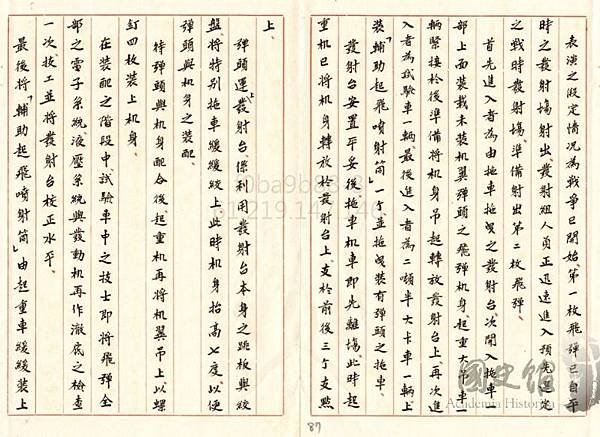 表演之假定情況為戰爭已開始第一枚飛彈已自平
時之發射場射出發射組人員正迅速進入預先選定
之戰時發射場準備射出第二枚飛彈、
首先進入者為由拖車拖曳之發射台次開入拖車一
部上面裝載未裝机翼彈頭之飛彈机身、起重大吊車一
輛緊接於後準備將机身吊起轉放發射台上、再次進
入者為試驗車一輛、最後進入者為二噸半大卡車一輛上
裝「輔助起飛噴射筒」一个並拖曳裝有彈頭之拖車、
發射台安置平妥後拖車机車即先離場此時起
重机已將机身轉放於發射台上支於前後三个支點
上、
彈頭運上發射台係利用發射台本身之跳板與絞
盤將特別拖車緩緩絞上此時机身抬高七度以便
彈頭與机身之裝配、
待彈頭與机身配合後起重机再將机翼吊上以螺
釘四枚裝上机身、
在裝配之階段中試驗車中之技士即將飛彈全
部之電子系統液壓系統與發動机再作澈底之檢查
一次、技工並將發射台校正水平、
最後將「輔助起飛噴射筒」由起重車緩緩裝上
87
國史館
Academia Historica